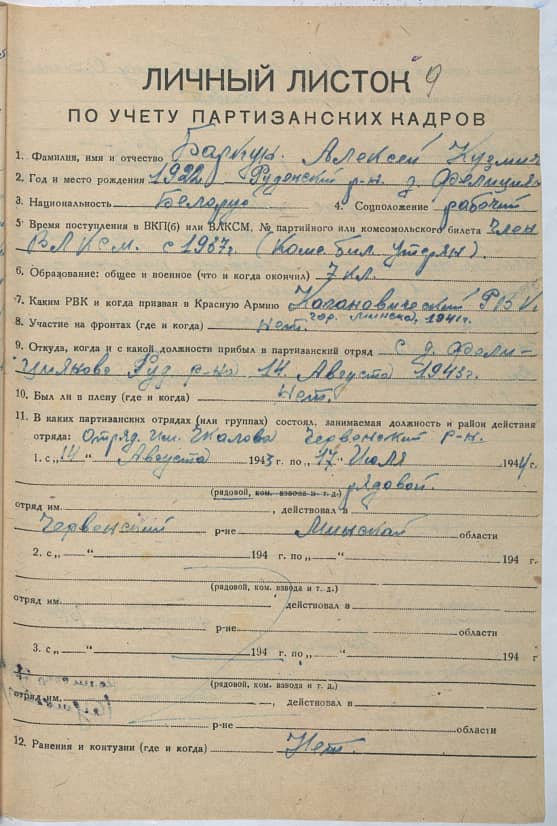 ЛИЧНЫЙ ЛИСТОК 9
ПО УЧЕТУ ПАРТИЗАНСКИХ КАДРОВ
1. Фамилия, имя и отчество Баркун Алексей Кузмич
2. Год и место рождения 1922 Руденский р-н д. Фелициян
3. Национальность Белорус 4. Соцположение рабочий
5. Время поступления в ВКП(б) или ВЛКСМ, № партийного или комсомольского билета Член
ВЛКСМ. с 1937г (Комс бил. утерян).
6. Образование: общее и военное (что и когда окончил) 7 кл.
7. Каким РВК и когда призван в Красную Армию Кагановический РВК.
гор. Минска, 1941г.
8. Участие на фронтах (где и когда) Нет.
9. Откуда, когда и с какой должности прибыл в партизанский отряд с д. Фели-
цияново Руд. р-на 14 Августа 1943г.
10. Был ли в плену (где и когда) Нет.
11. В каких партизанских отрядах (или группах) состоял, занимаемая должность и район действия
отряда: Отряд им. Чкалова Червенский р-н.
1. с „14“ Августа 1943 г. по „17“ Июля 1944 г.
(рядовой, ком. взвода и т. д.) рядовой.
отряд им. , действовал в
Червенский р-не Минской области
2. с „ “ 194 г. по „ “ 194
(рядовой, ком. взвода и т. д.)
отряд им. действовал в
р-не области
3. с „ “ 194 г. по „ “ 194
(рядовой, ком. взвода и т. д.)
отряд им. , действовал в
р-не области
12. Ранения и контузии (где и когда) Нет.